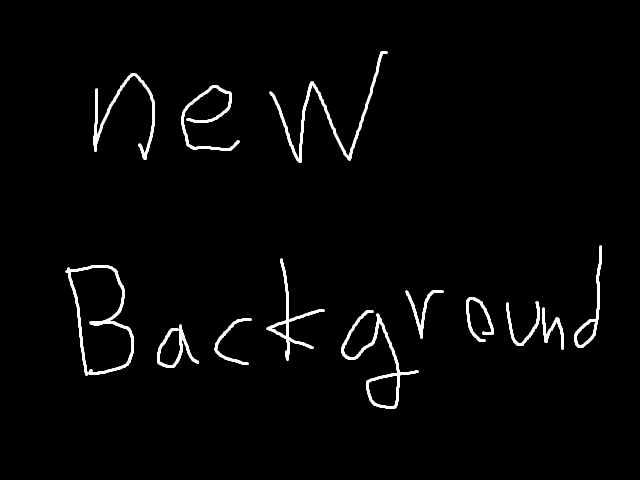 new
Background